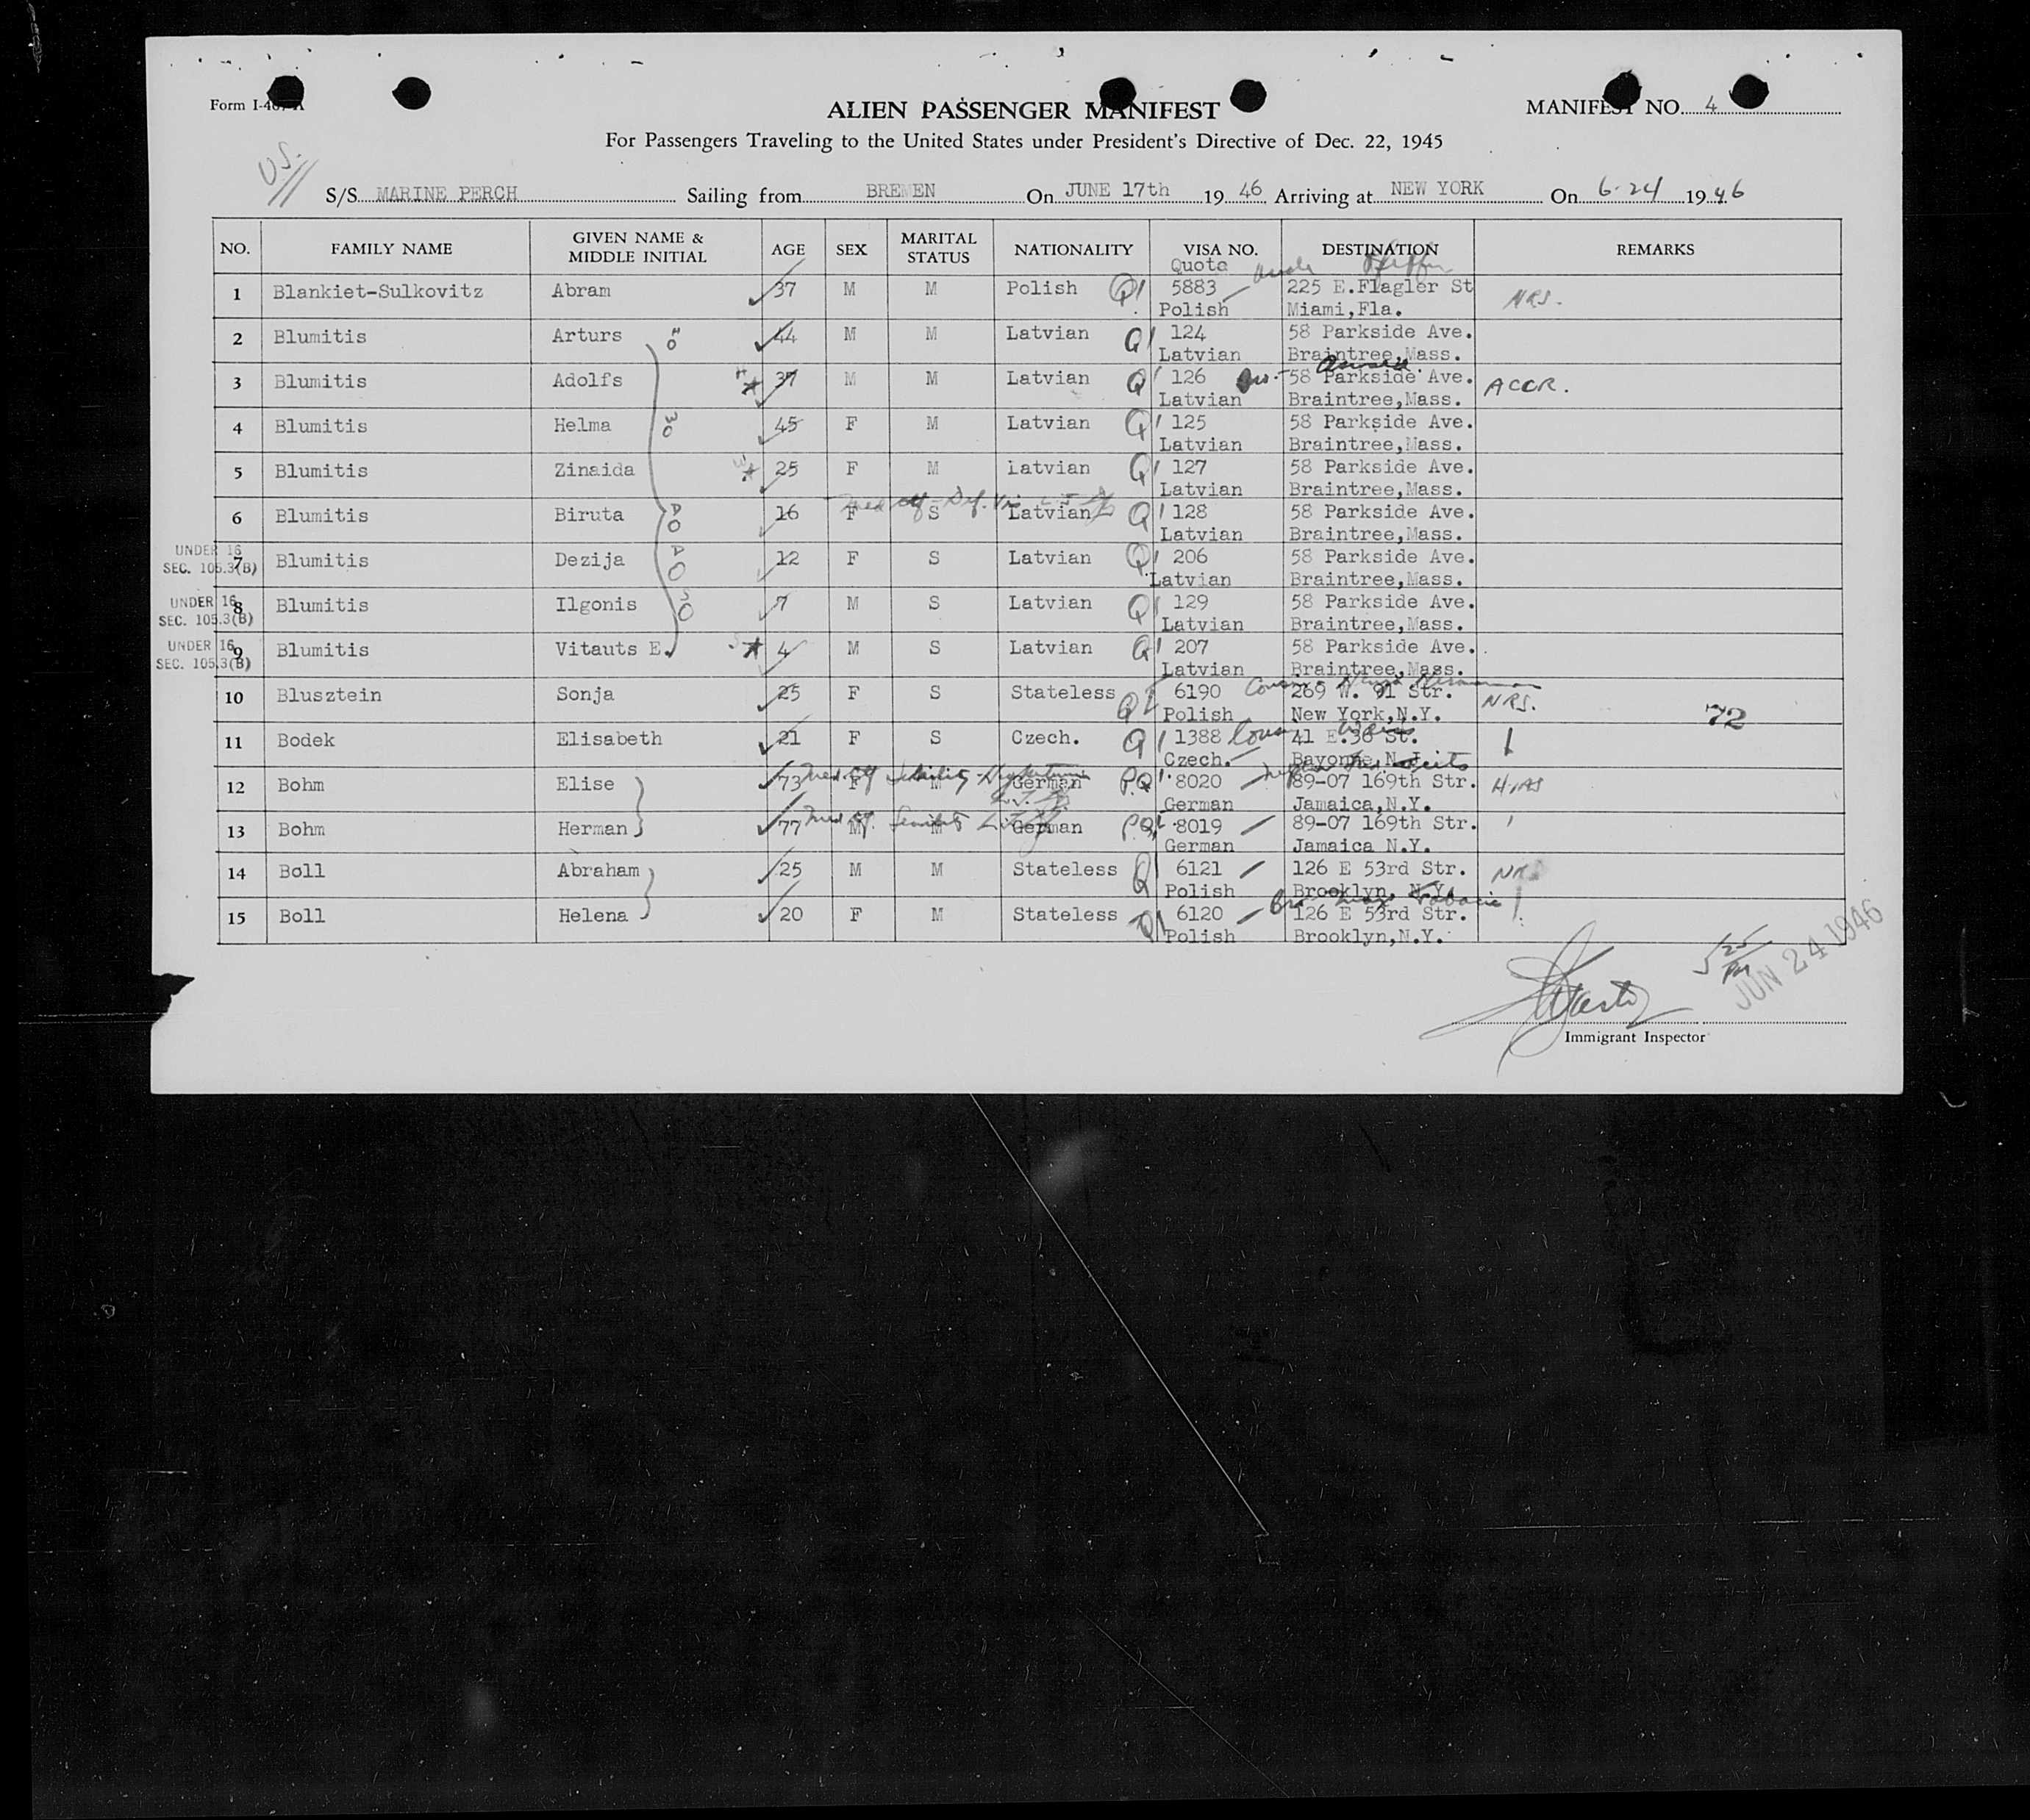 Form I-467A
ALIEN PASSENGER MANIFEST
MANIFEST NO. 4
For Passengers Traveling to the United States under President's Directive of Dec. 22, 1945
U.S.
S/S MARINE PERCH Sailing from BREMEN On JUNE 17th 1946 Arriving at NEW YORK On 6-24 1946
NO. FAMILY NAME GIVEN NAME & MIDDLE INITIAL AGE SEX MARITAL STATUS NATIONALITY VISA NO. DESTINATION REMARKS
Quota
1 Blankiet-Sulkovitz Abram 37 M M Polish Q1 5883 225 E.Flagler St NRS.
Polish Miami,Fla.
2 Blumitis Arturs 44 M M Latvian Q1 124 58 Parkside Ave.
Latvian Braintree,Mass.
3 Blumitis Adolfs 37 M M Latvian Q1 126 58 Parkside Ave. ACCR.
Latvian Braintree,Mass.
4 Blumitis Helma 45 F M Latvian Q1 125 58 Parkside Ave.
Latvian Braintree,Mass.
5 Blumitis Zinaida 25 F M Latvian Q1 127 58 Parkside Ave.
Latvian Braintree,Mass.
6 Blumitis Biruta 16 F S Latvian Q1 128 58 Parkside Ave.
Latvian Braintree,Mass.
UNDER 16
SEC. 105.3(B)
7 Blumitis Dezija 12 F S Latvian Q1 206 58 Parkside Ave.
Latvian Braintree,Mass.
UNDER 16
SEC. 105.3(B)
8 Blumitis Ilgonis 7 M S Latvian Q1 129 58 Parkside Ave.
Latvian Braintree,Mass.
UNDER 16
SEC. 105.3(B)
9 Blumitis Vitauts E. 4 M S Latvian Q1 207 58 Parkside Ave.
Latvian Braintree,Mass.
10 Blusztein Sonja 25 F S Stateless Q1 6190 269 W. 91 Str. NRS.
Polish New York,N.Y. 72
11 Bodek Elisabeth 21 F S Czech. Q1 1388 41 E.36 St.
Czech. Bayonne,N.J.
12 Bohm Elise 73 F M German P.Q1 8020 89-07 169th Str. HIAS
German Jamaica,N.Y.
13 Bohm Herman 77 M M German P.Q1 8019 89-07 169th Str.
German Jamaica N.Y.
14 Boll Abraham 25 M M Stateless Q1 6121 126 E 53rd Str. NRS
Polish Brooklyn, N.Y.
15 Boll Helena 20 F M Stateless Q1 6120 126 E 53rd Str.
Polish Brooklyn,N.Y.
5 25 PM
JUN 24 1946
Immigrant Inspector